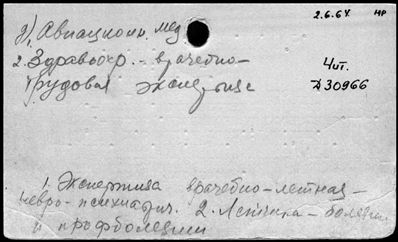 2.6.64. НР
д) Авиационн. мед.
2. Здравоохр. - врачебно-
трудовая экспертиза
Чит.
Д30966
1. Экспертиза врачебно-летная-
невро-психиатрич. 2. Летчика-болезни
и профболезни